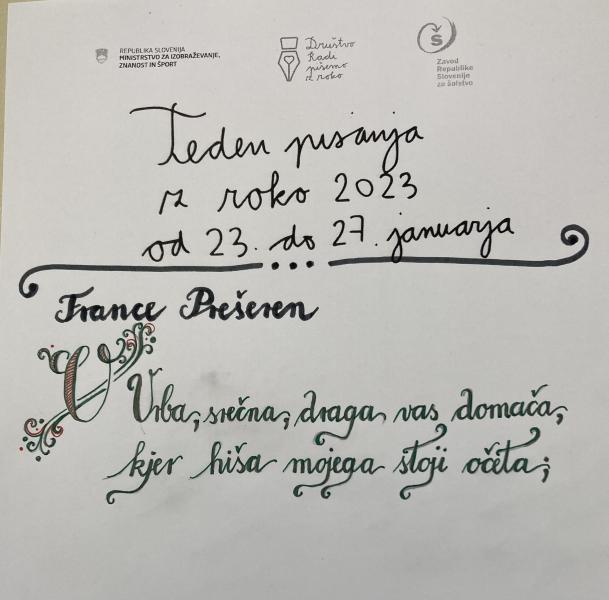 REPUBLIKA SLOVENIJA
MINISTRSTVO ZA IZOBRAŽEVANJE,
ZNANOST IN ŠPORT
Društvo
Radi
pišemo
z roko
Š
Zavod
Republike
Slovenije
za šolstvo
Teden pisanja
z roko 2023
od 23. do 27. januarja
France Prešeren
V
Vrba, srečna, draga vas domača,
kjer hiša mojega stoji očeta;